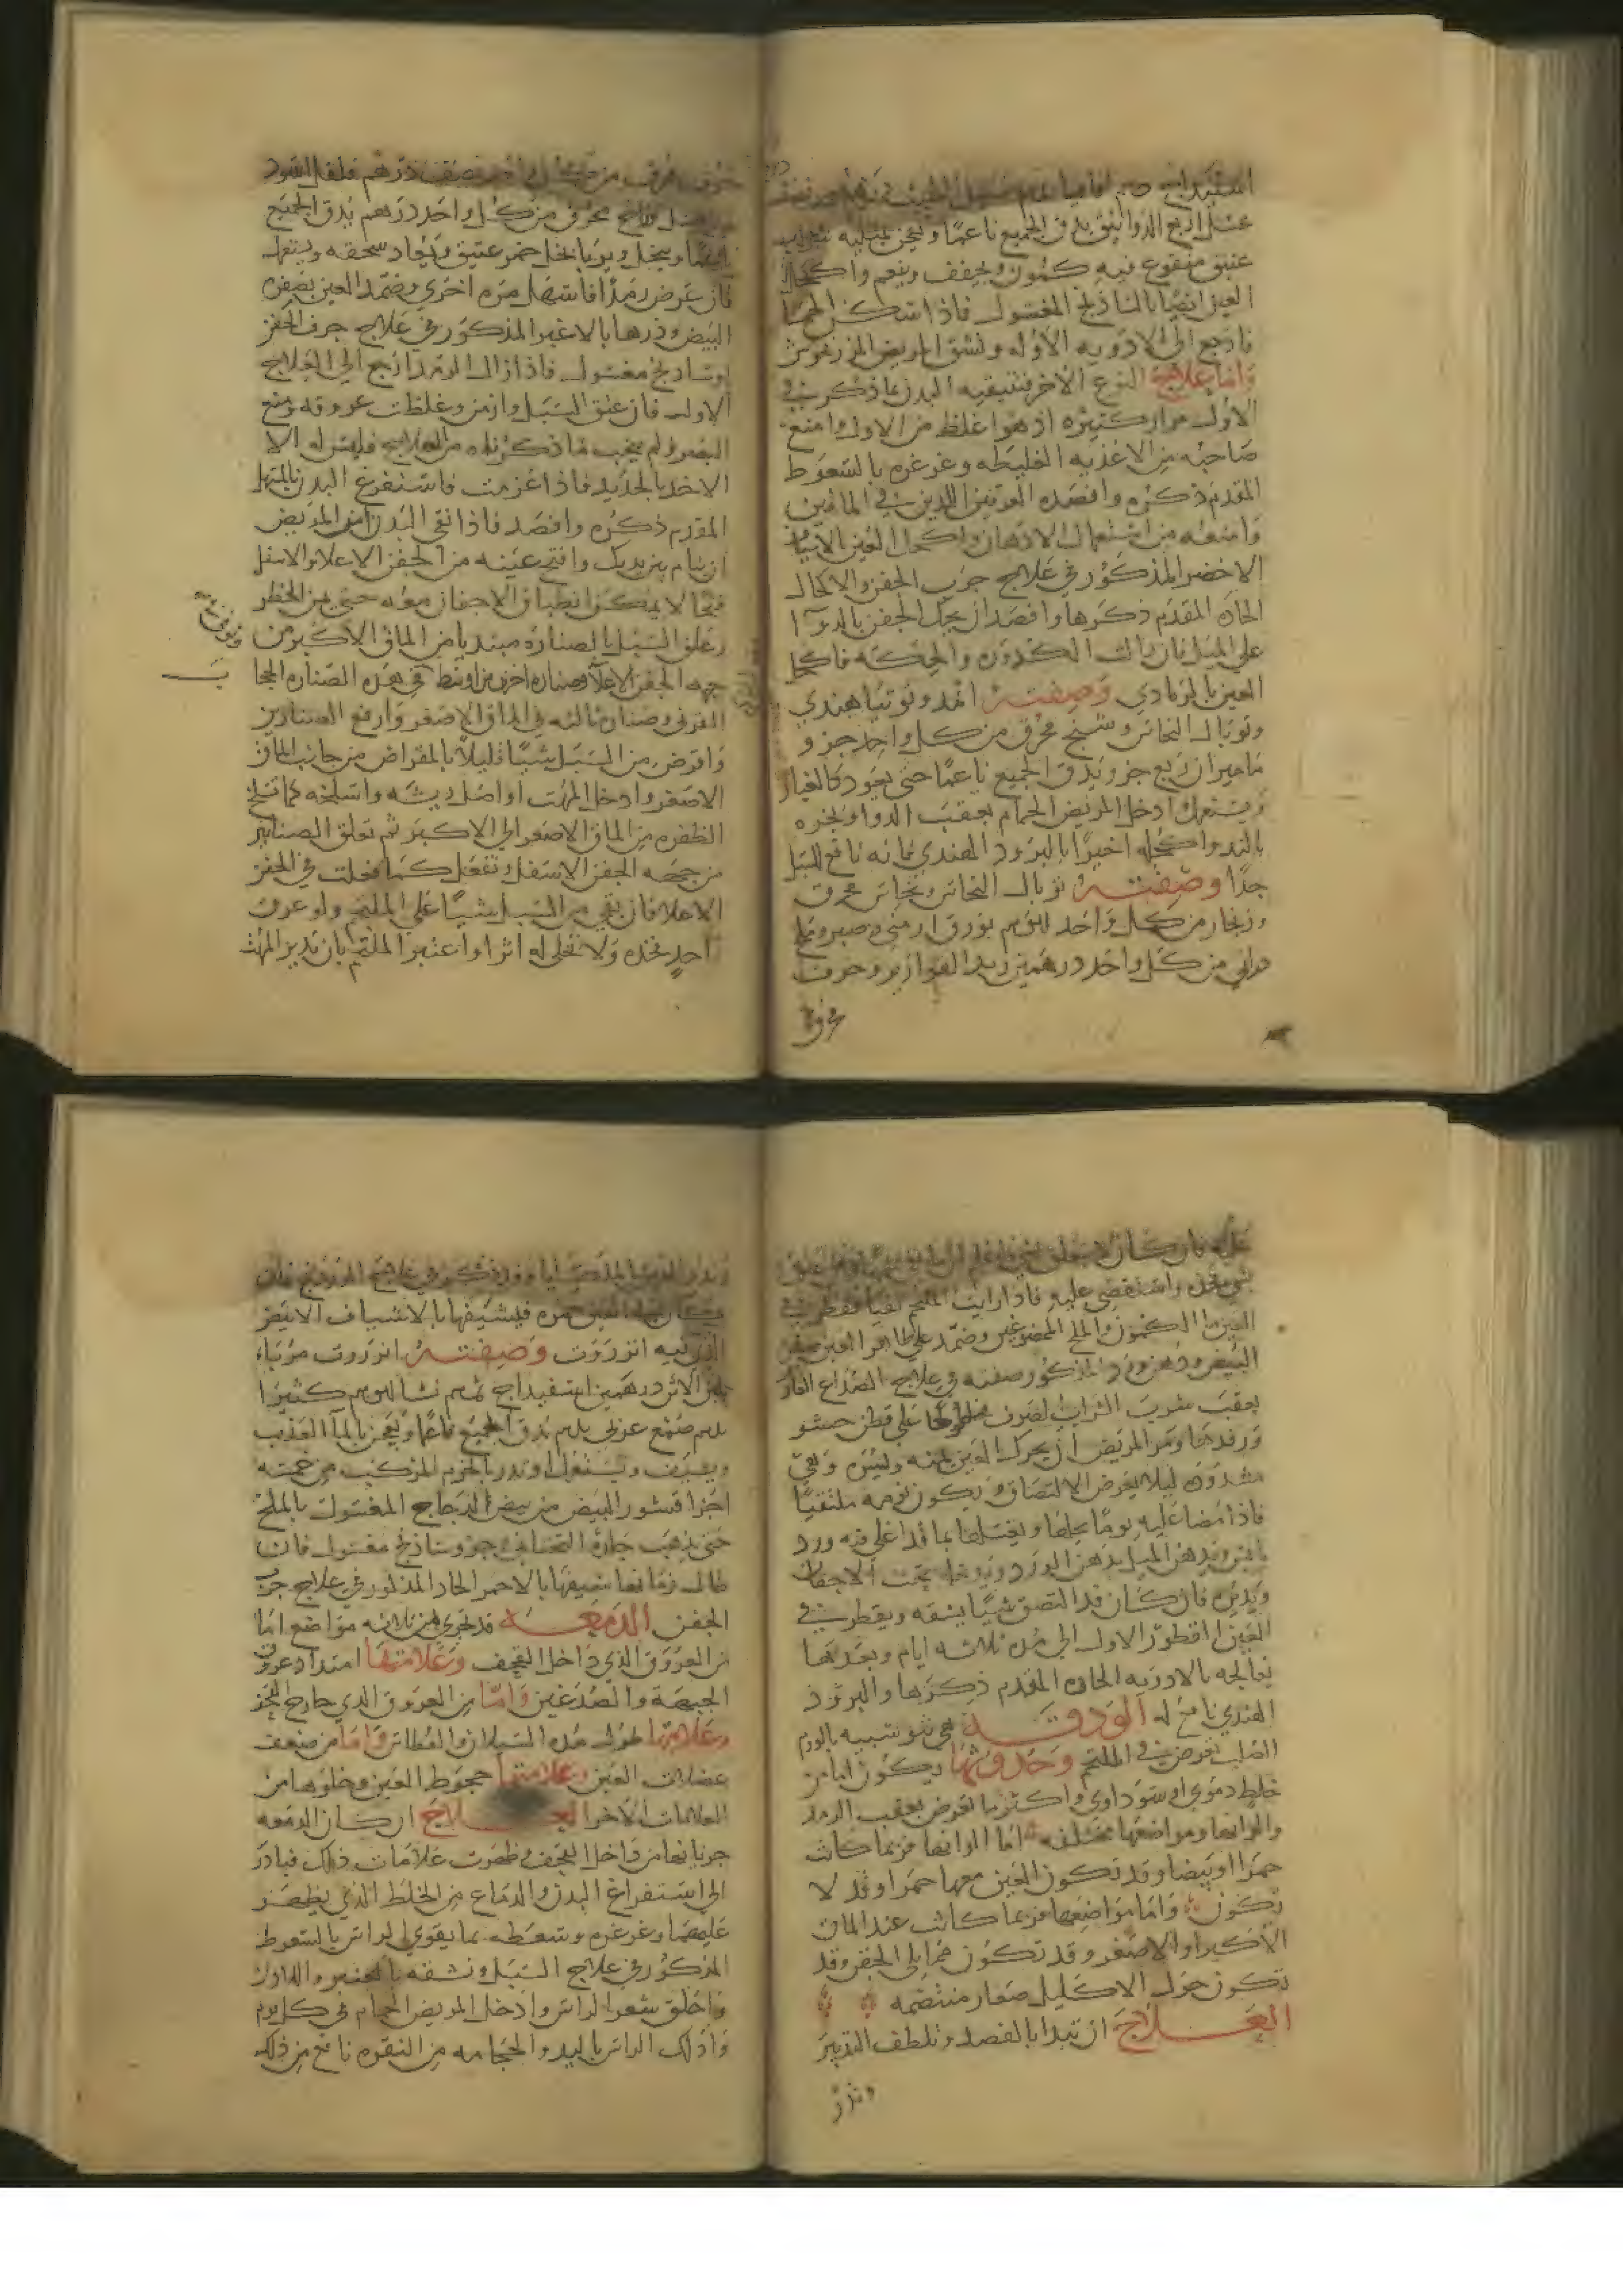 عسل اربع الدوانيق يدق الجميع ناعما ويعجن بمثليه شراب
عتيق منقوع فيه كمون ويجفف وينعم واكحل
العين ايضا بالشاذنج المغسول فاذا سكن الحما
فارجع الى الادويه الاوله ونشق المريض المرزنجوش
واما علاج النوع الاخر فتنقيه البدن بما ذكر في
الاول مرار كثيره اذ هو اغلظ من الاول وامنع
صاحبه من الاغذيه الغليظه وغرغره بالسعوط
المقدم ذكره وافصده العرقين اللذين في الماقين
وامنعه من استعمال الادهان واكحل العين الاشياف
الاخضر المذكور في علاج جرب الجفن والاكحال
الحاده المقدم ذكرها واقصد ان يحك الجفن بالدوآ
على الميل فان زالت الكدوره والحكه فاكحل
العين بالرمادي وصفته اثمد وتوتيا هندي
وتوبال النحاس وشيح محرق من كل واحد جزو
ماميران ربع جزو يدق الجميع ناعما حتى يعود كالغبار
ويستعمل وادخل المريض الحمام بعقب الدوا وبخره
بالند واكحله اخيرا بالبرود الهندي فانه نافع للسبل
جدا وصفته توبال النحاس ونحاس محرق
وزنجار من كل واحد درهم بورق ارمني وصبر وملح
دراني من كل واحد درهمين زبد القوارير وخزف
خزف محرق من كل واحد نصف درهم فلفل اسود
محرق من كل واحد درهم يدق الجميع
ناعما وينخل ويربا بخل خمر عتيق ويعاد سحقه ويستعمل
فان عرض رمد فاسهل مره اخرى وضمد العين بصفره
البيض وذرها بالاغبر المذكور في علاج حرف الجفن
او شادنج مغسول فاذا زال الرمد ارجع الى العلاج
الاول فان عتق السبل وازمن وغلظت عروقه ومنع
البصر ولم ينجب ما ذكرناه من العلاج فليس له الا
الاخذ بالحديد فاذا عزمت فاستفرغ البدن بالمسهل
المقدم ذكره وافصد فاذا نقى البدن امر المريض
ان ينام بين يديك وافتح عينه من الجفن الاعلا والاسفل
فتحا لا يمكن انطباق الاجفان معه حتى من الخطر
وعلق السبل بالصناره مبتديا من الماق الاكبر من
جهه الجفن الاعلا وصناره اخرى من اوسط في هذه الصناره الجحا
القرني وصناره ثالثه في الماق الاصغر وارفع الصنانير
واقرض من السبل شيا قليلا بالمقراض من جانب الماق
الاصغر وادخل المهت او اصل ريشه واسلخه كما تسلخ
الظفره من الماق الاصغر الى الاكبر ثم تعلق الصنانير
من جهه الجفن الاسفل وتفعل كما فعلت في الجفن
الاعلا فان بقي من السبل شيا على الملتحم ولو عرق
واحد فخذه ولا تخلى له اثرا واعتبر الملتحم بان تدير المهت
بشي فخذه واستقصى عليه فاذا رايت الملتحم نقيا فقطر في
العين ما الكمون والملح الممضوغين وضمد على ظاهر العين بصفره
يعقب شرب الشراب الصرف على قطن حشو
ورفدها ومر المريض ان يحرك العين يمنه ويسره وهي
مشدوده ليلا يعرض الالتصاق ويكون نومه ملتقيا
فاذا مضا عليه يوما يحلها ويغسلها بما قد اغلى فيه ورد
يابس ويدهن الميل بدهن الورد ويدخله تحت الاجفان
ويديره فان كان قد التصق شيا يشقه ويقطر في
العين القطور الاول الى مده ثلاثه ايام وبعدها
يعالجه بالادويه الحاده المقدم ذكرها والبرود
الهندي نافع له الودقه هي نتو شبيه بالورم
الصلب تعرض في الملتحم وحدوثها يكون اما من
خلط دموي او سوداوي واكثر ما تعرض بعقب الرمد
والوانها ومواضعها مختلفه اما الوانها فربما كانت
حمرا او بيضا وقد تكون العين معها حمرا وقد لا
تكون واما مواضعها فربما كانت عند الماق
الاكبر او الاصغر وقد تكون مما يلي الجفن وقد
تكون حول الاكليل صغار منتضمه
العلاج ان تبدا بالفصد وتلطف التدبير
وتذر
كان في العين حمره فيشيفها بالاشياف الابيض
الذي فيه انزروت وصفته انزروت مربا
بلبن الاتن درهمين اسفيداج درهم نشا درهم كثيرا
درهم صمغ عربي درهم يدق الجميع ناعما ويعجن بالمآ العذب
ويشيف ويستعمل او تذر بالحزم المركب من خمسه
اجزا قشور البيض من بيض الدجاج المغسول بالملح
حتى يذهب جلده التحتاني جزو وشاذنج مغسول فان
طال زمانها شيفها بالاحمر الحاد المذكور في علاج جرب
الجفن الدمعه قد تجري من ثلاثه مواضع اما
من العروق الذي داخل القحف وعلامتها امتداد عروق
الجبهة والصدغين واما من العروق الذي خارج القحف
وعلامتها طول مده السيلان والعطاس واما من ضعف
عضلات العين وعلامتها جحوظ العين وخلوها من
العلامات الاخر العلاج ان كان الدمعه
جريانها من داخل القحف وظهرت علامات ذلك فبادر
الى استفراغ البدن والدماغ من الخلط الذي يظهر
عليهما وغرغره وسعطه بما يقوي الراس بالسعوط
المذكور في علاج السبل ونشقه بالعنبر واللادن
واحلق شعر الراس وادخل المريض الحمام في كل يوم
وادلك الراس باليد والحجامه من النقره نافع من ذلك